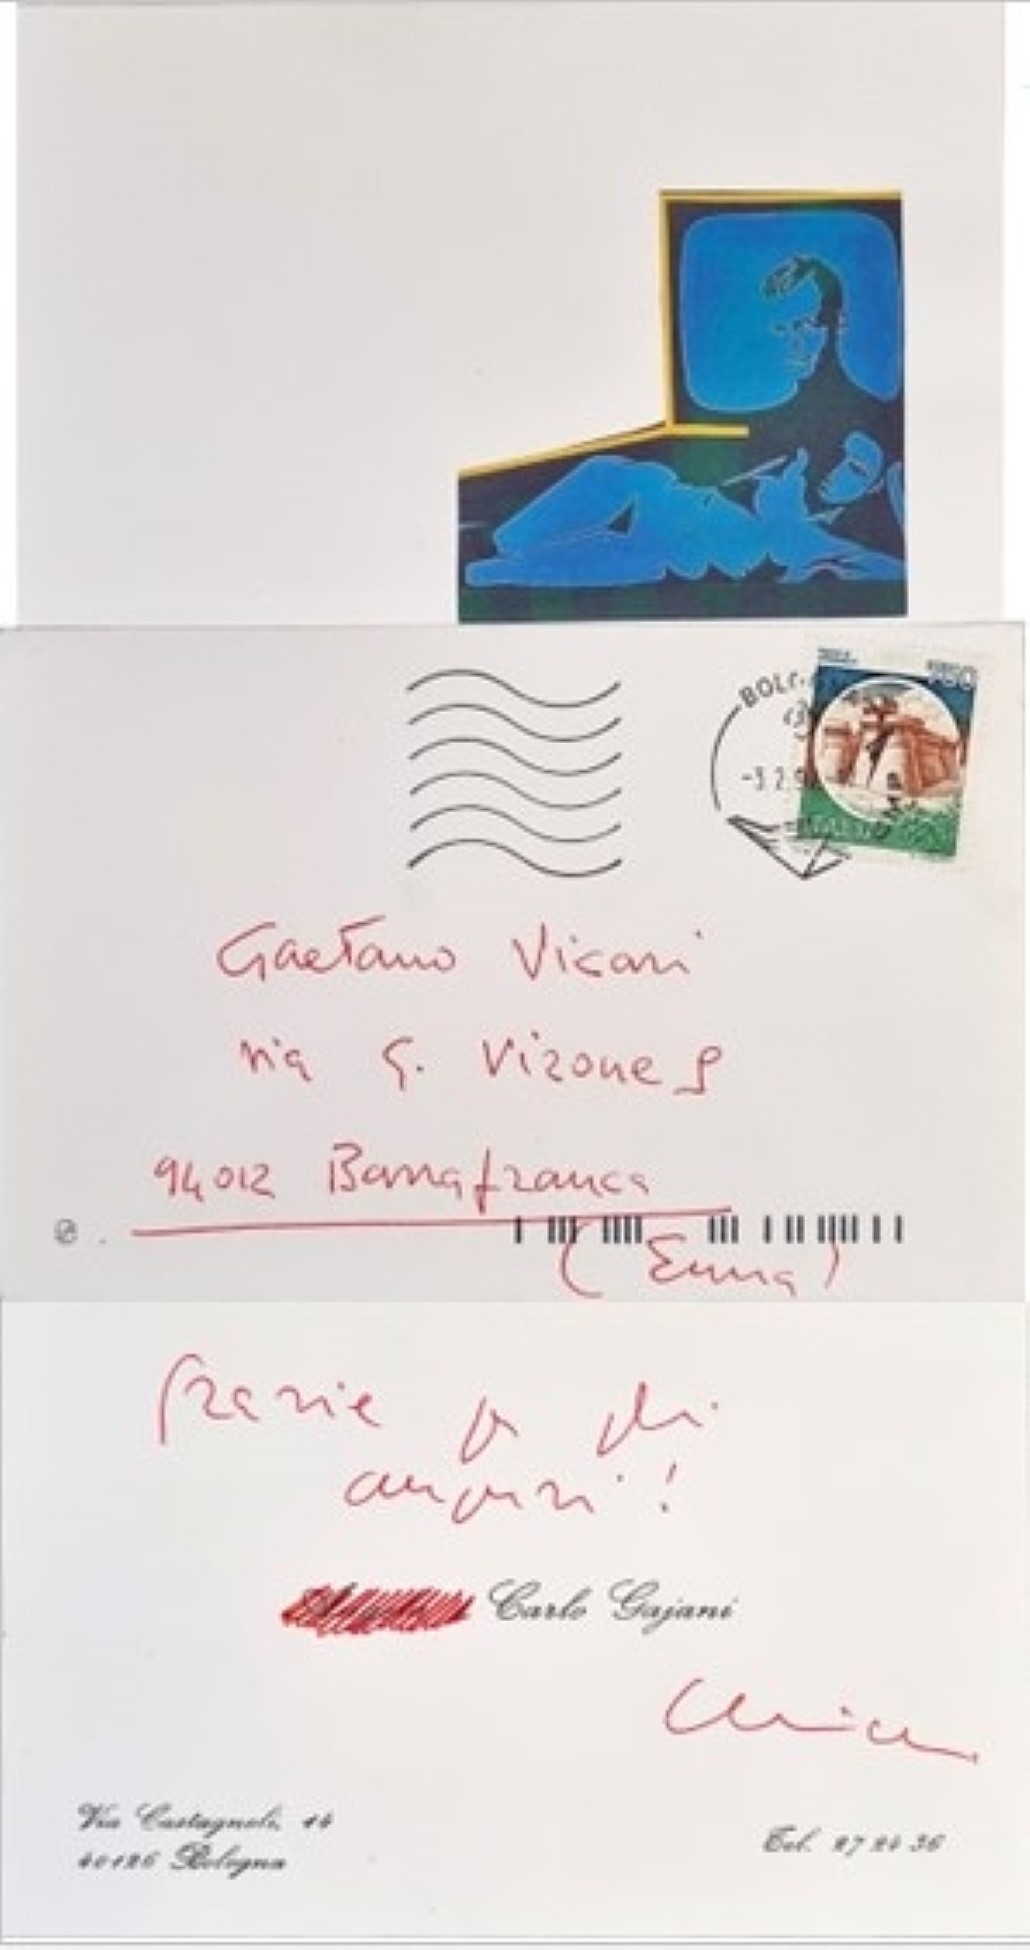 BOLO
-3.2.9
750
Gaetano Vicari
via G. Vizone 8
94012 Barrafranca
(Enna)
Grazie per gli
auguri!
Carlo Gajani
Via Castagnoli, 14
40126 Bologna
Tel. 27 24 36